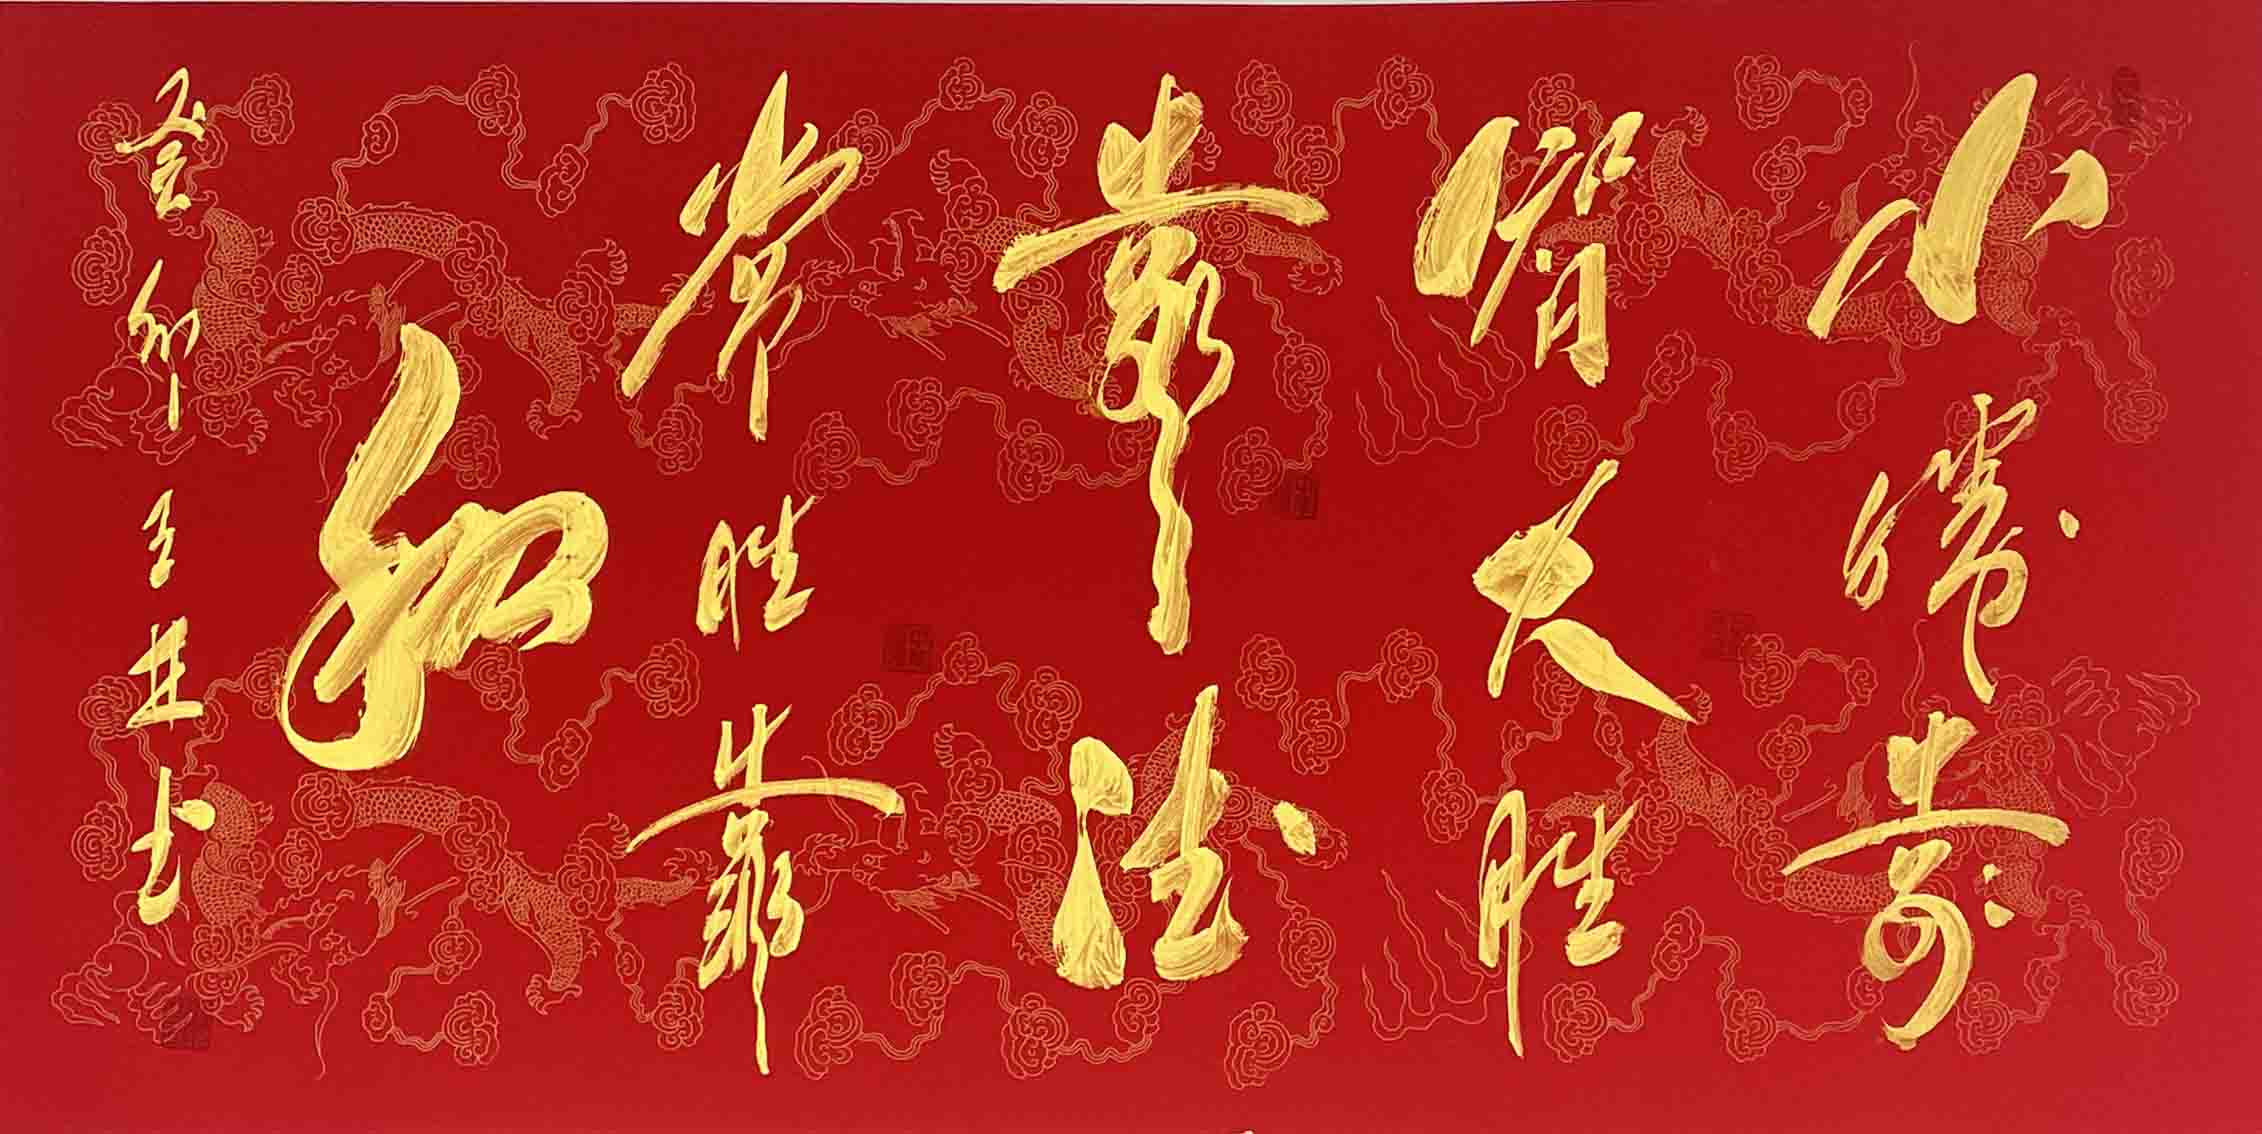 小勝靠
智大胜
靠德
常胜靠
和
癸卯 书